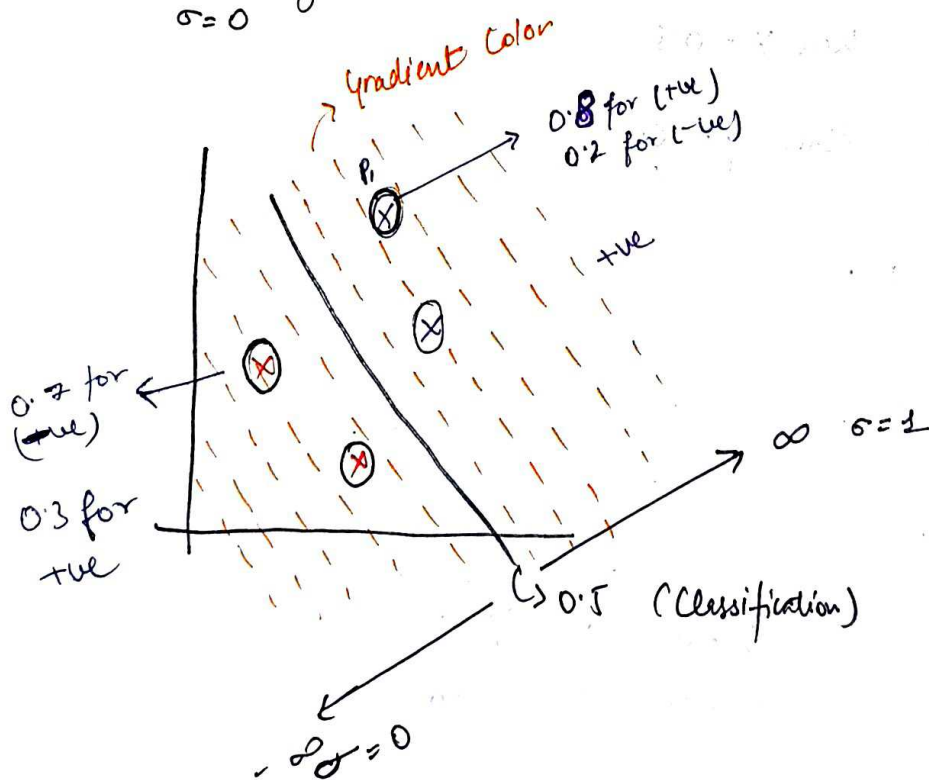 σ=0
Gradient Color
0.8 for (+ve)
0.2 for (-ve)
P₁
+ve
0.7 for
(-ve)
0.3 for
+ve
∞ σ=1
0.5 (Classification)
-∞ σ=0